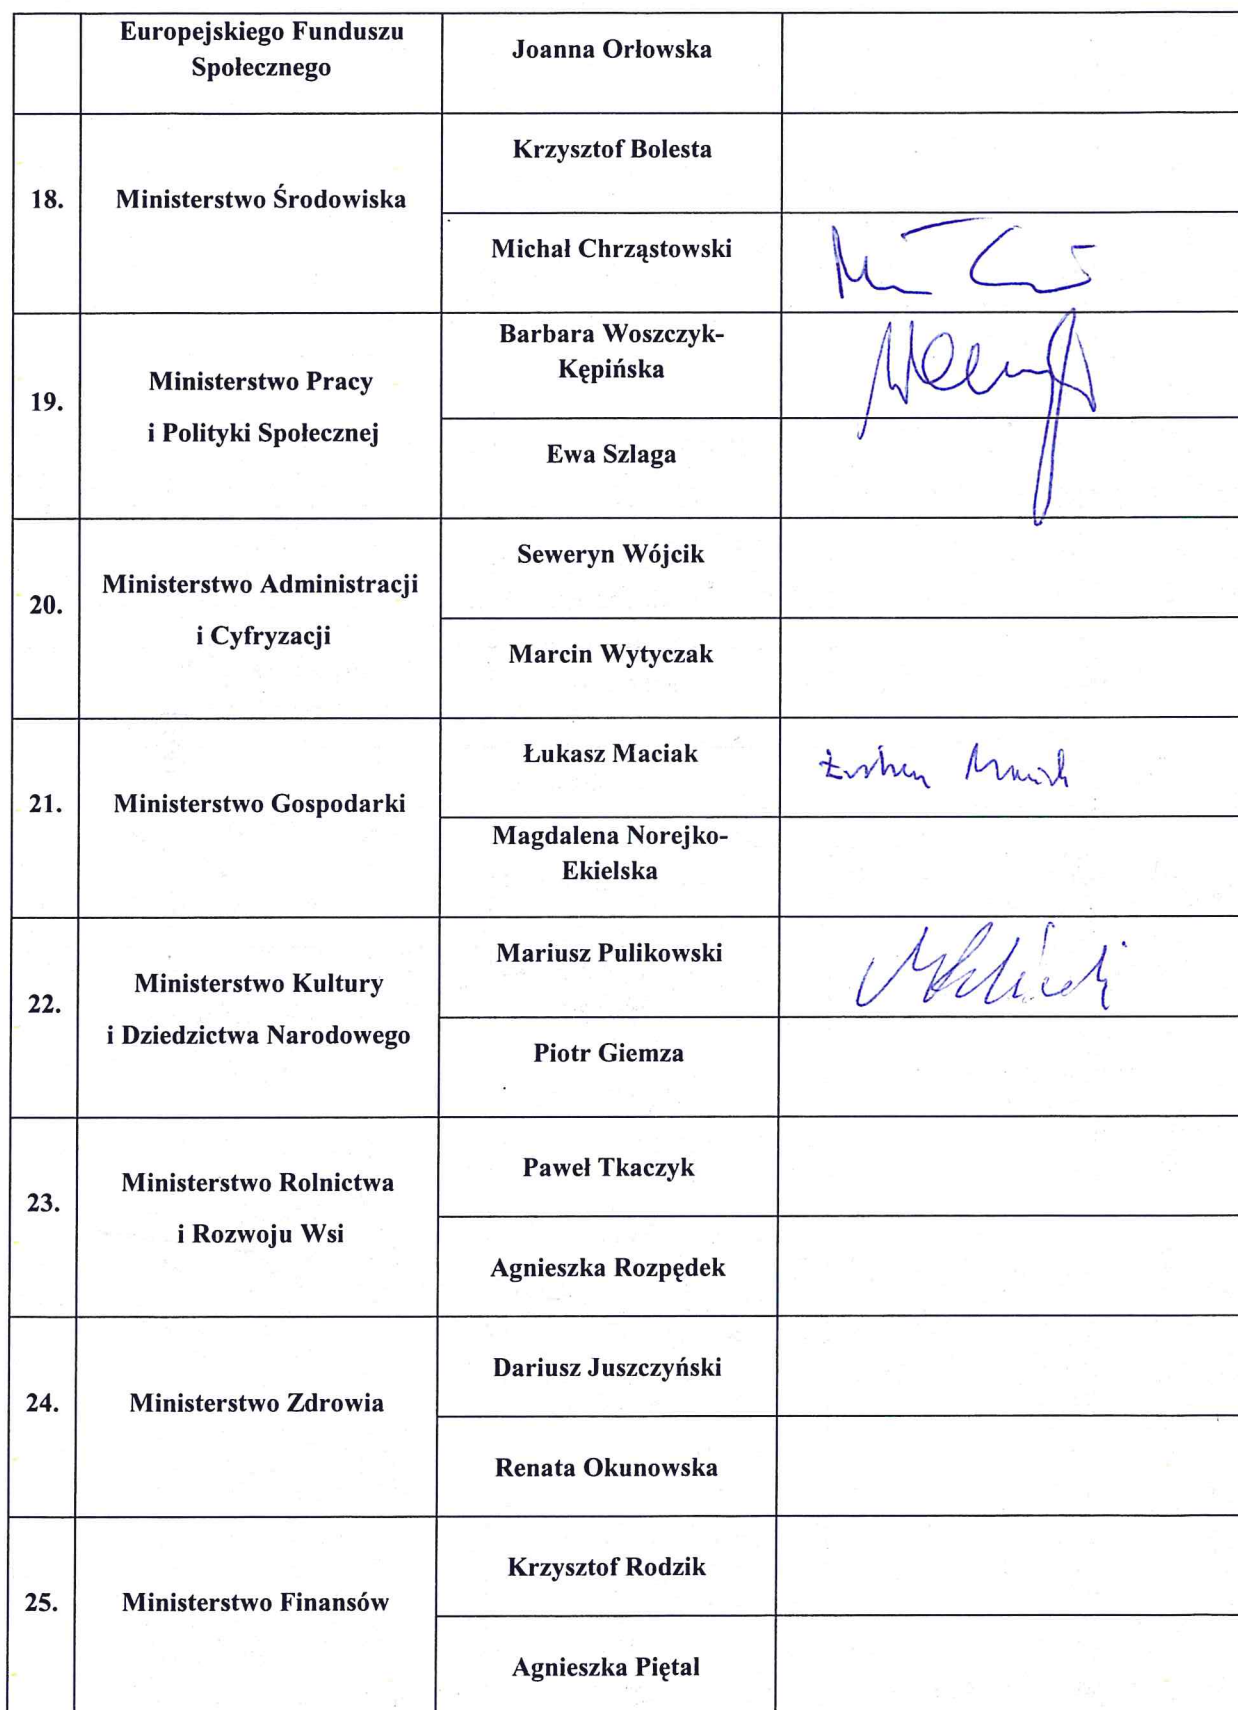 Europejskiego Funduszu
Społecznego
Joanna Orłowska
18.
Ministerstwo Środowiska
Krzysztof Bolesta
Michał Chrząstowski
19.
Ministerstwo Pracy
i Polityki Społecznej
Barbara Woszczyk-
Kępińska
Ewa Szlaga
20.
Ministerstwo Administracji
i Cyfryzacji
Seweryn Wójcik
Marcin Wytyczak
21.
Ministerstwo Gospodarki
Łukasz Maciak
Łukasz Maciak
Magdalena Norejko-
Ekielska
22.
Ministerstwo Kultury
i Dziedzictwa Narodowego
Mariusz Pulikowski
Piotr Giemza
23.
Ministerstwo Rolnictwa
i Rozwoju Wsi
Paweł Tkaczyk
Agnieszka Rozpędek
24.
Ministerstwo Zdrowia
Dariusz Juszczyński
Renata Okunowska
25.
Ministerstwo Finansów
Krzysztof Rodzik
Agnieszka Piętal